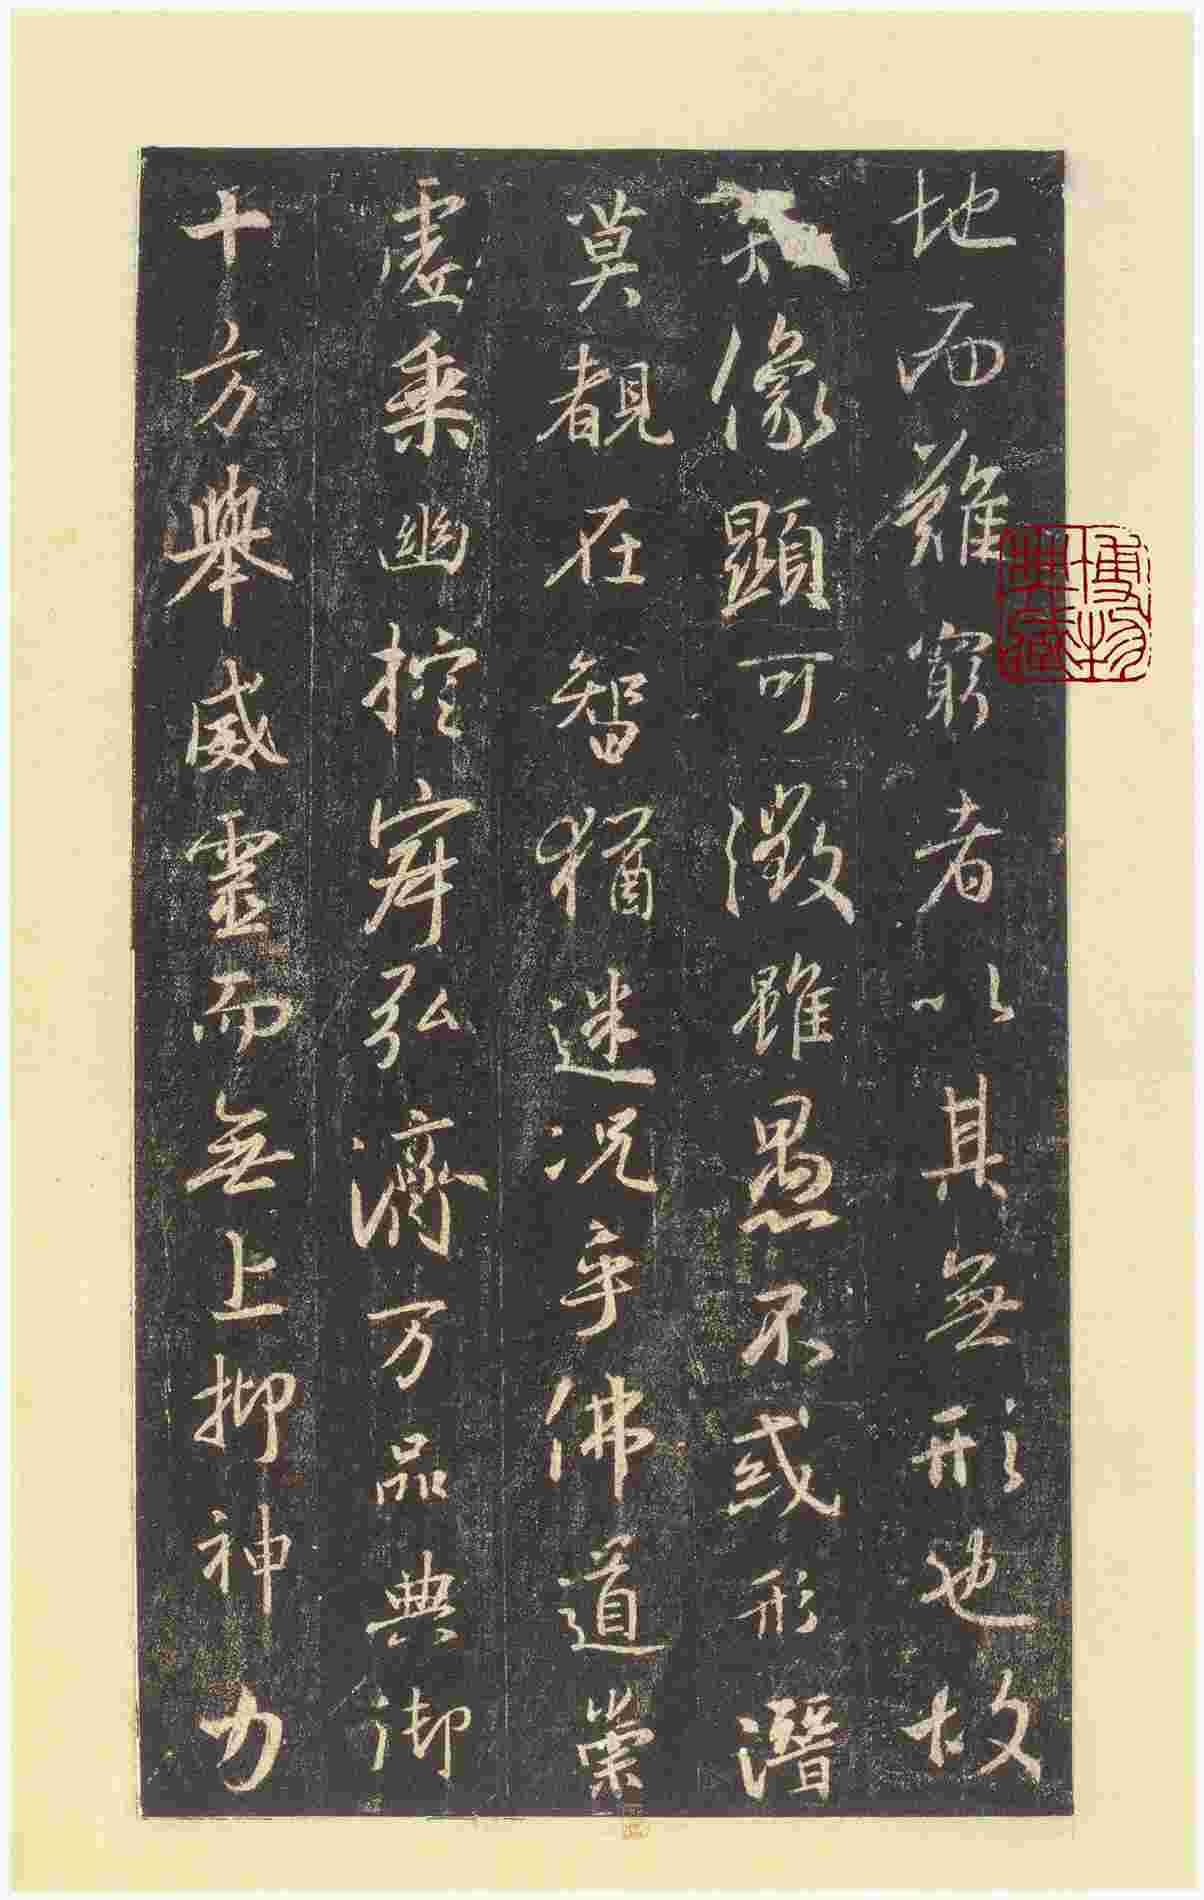 地而難窮者以其無形也故
像顯可徵雖愚不惑形潛
莫覩在智猶迷况乎佛道崇
虛乘幽控寂弘濟万品典御
十方舉威靈而無上抑神力
博物
典藏